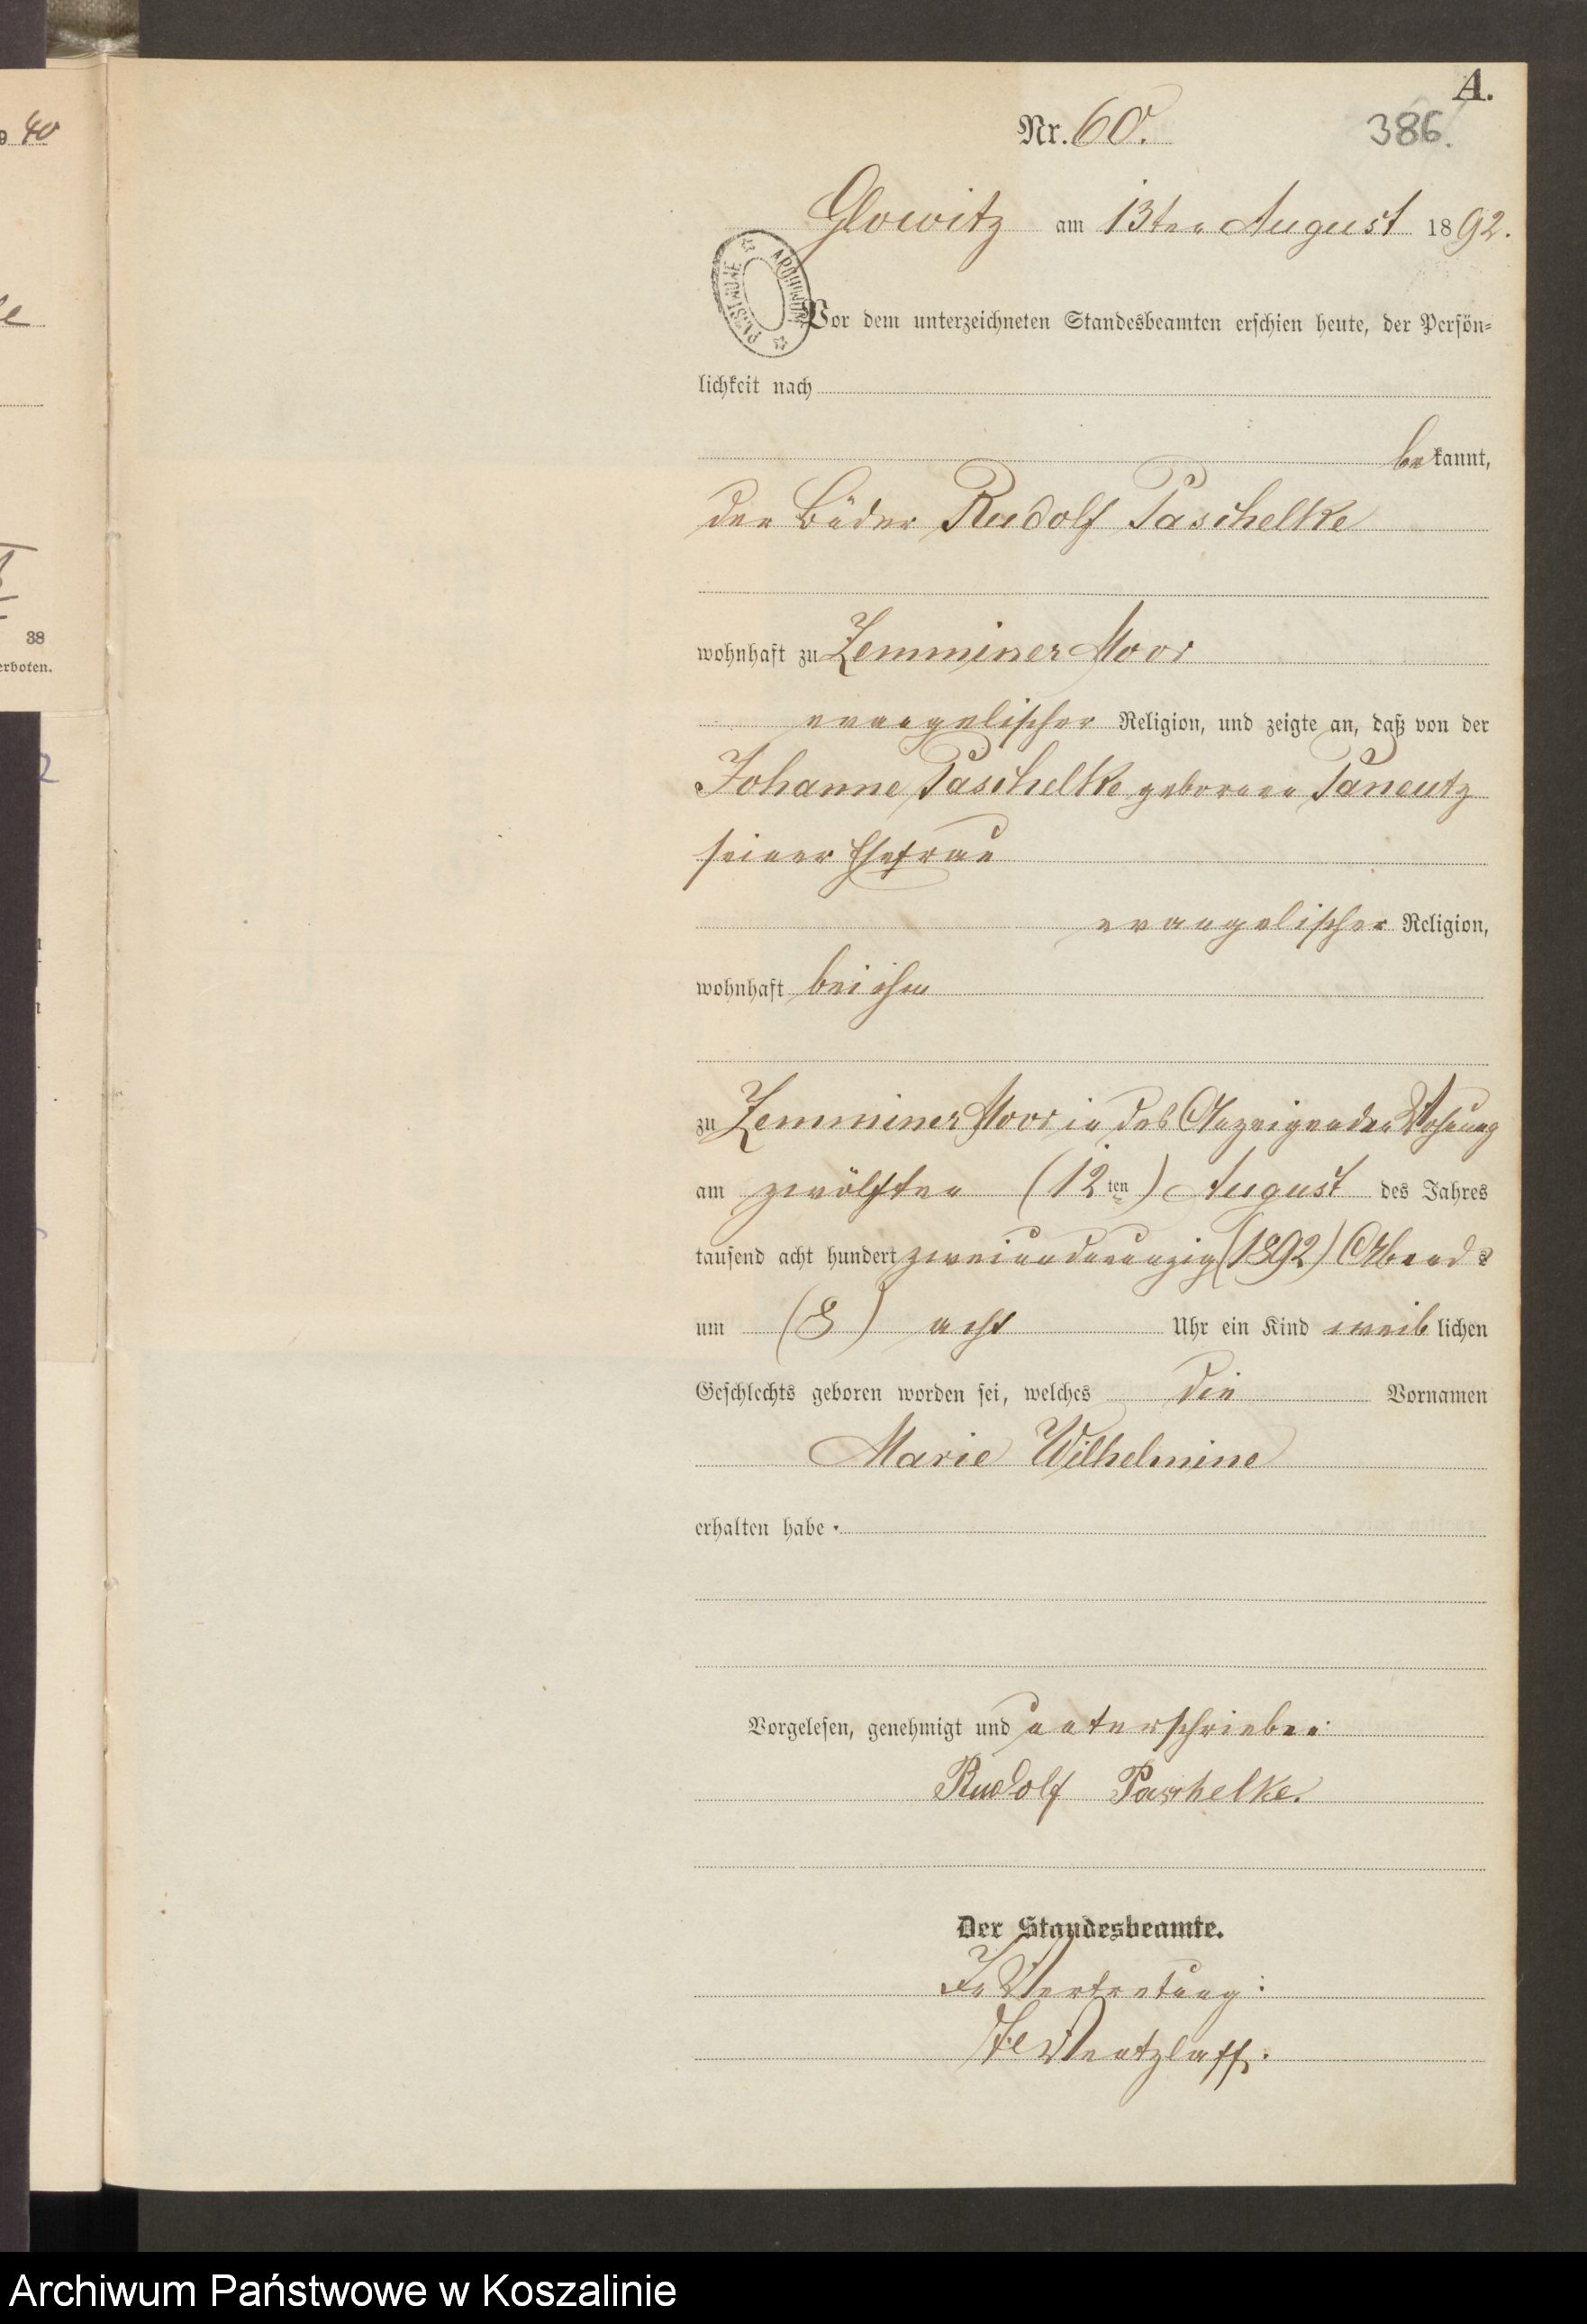 A.
Nr. 60.
386.
Glowitz am 13ten August 1892.
ARCHIWUM PAŃSTWOWE
Vor dem unterzeichneten Standesbeamten erschien heute, der Persön-
lichkeit nach
bekannt,
der Büdner Rudolf Paschelke
wohnhaft zu Zemminer Moor
evangelischer Religion, und zeigte an, daß von der
Johanne Paschelke geborene
seiner Ehefrau
evangelischer Religion,
wohnhaft bei ihm
zu Zemminer Moor in des Anzeigenden Wohnung
am zwölften (12ten) August des Jahres
tausend acht hundert zweiundneunzig (1892) Abends
um (8) acht Uhr ein Kind weiblichen
Geschlechts geboren worden sei, welches die Vornamen
Marie Wilhelmine
erhalten habe.
Vorgelesen, genehmigt und unterschrieben:
Rudolf Paschelke.
Der Standesbeamte.
In Vertretung:
Wentzlaff.
40
38
erboten.
Archiwum Państwowe w Koszalinie